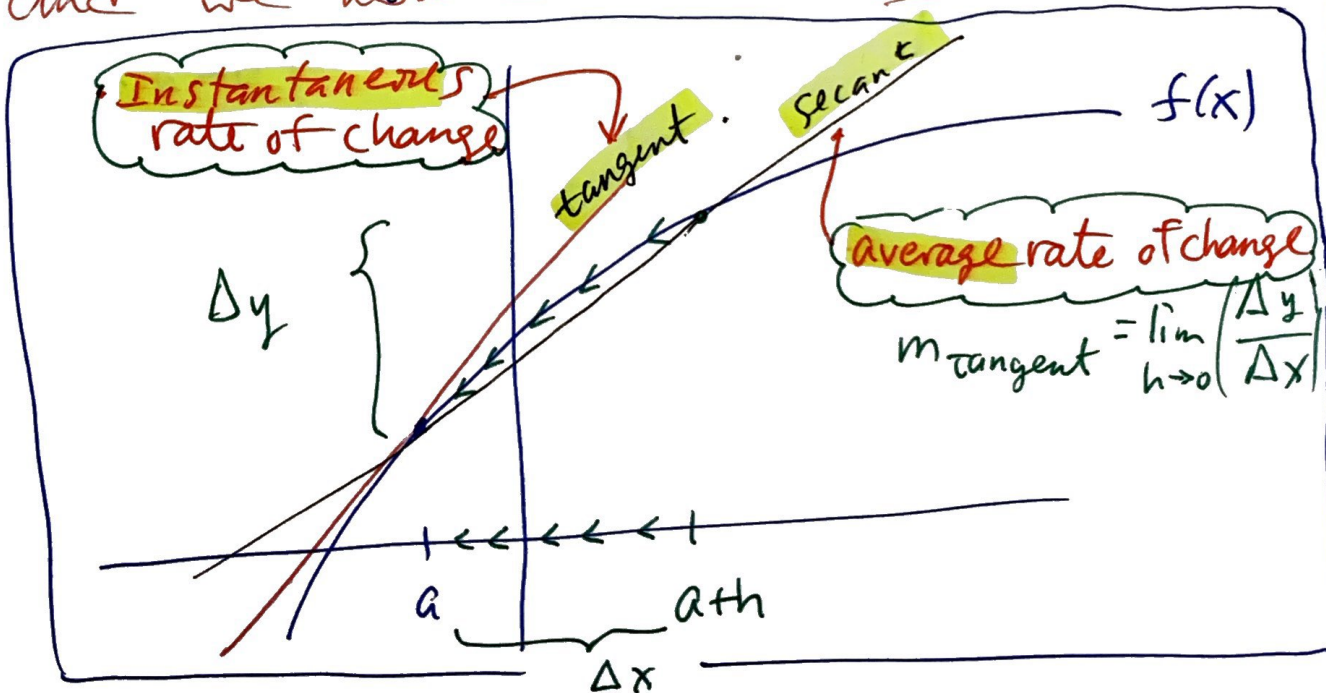 Instantaneous
rate of change
tangent
secant
f(x)
average rate of change
Δy
m tangent = lim h→0 (Δy/Δx)
a
a+h
Δx